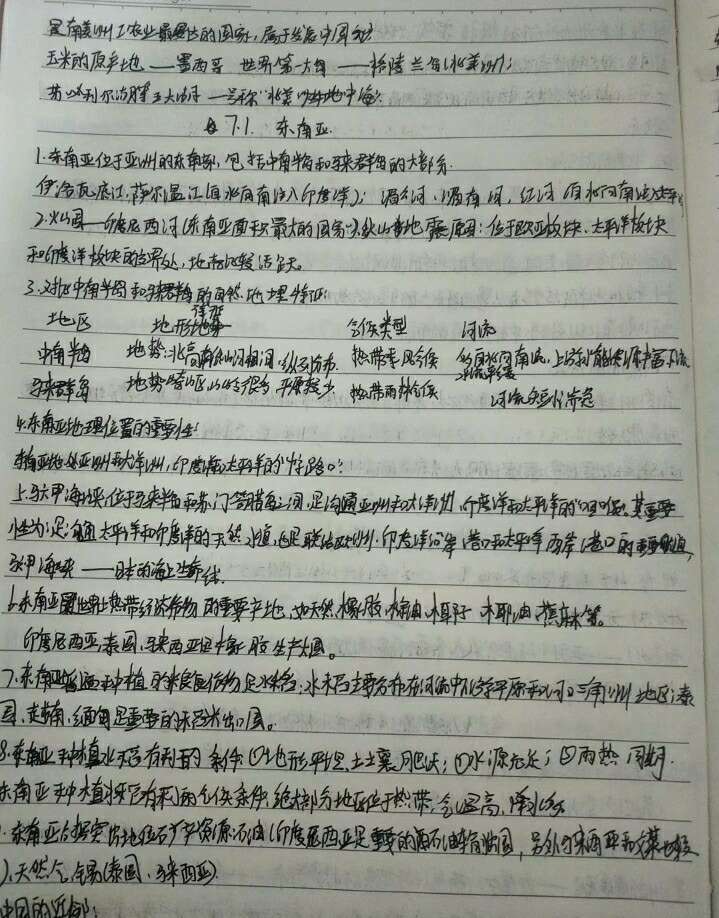 是南美洲工农业最发达的国家，属于发展中国家
玉米的原产地——墨西哥 世界第一大岛——格陵兰岛(北美洲);
劳 利尔 五大湖 —号称"北美 地中海"
7.1. 东南亚
1.东南亚位于亚洲的东南部，包括中南半岛和马来群岛的大部分.
伊洛瓦底江,萨尔温江(自北向南注入印度洋); 湄公河,湄南河,红河(自北向南注入太平
2.火山国——印度尼西亚(东南亚面积最大的国家).火山地震原因:位于欧亚板块、太平洋板块
和印度洋板块的交界处,地壳比较活跃。
3.对比中南半岛和马来群岛的自然地理特征:
地区 地形特征 气候类型 河流
中南半岛 地势:北高南低山河相间,纵列分布. 热带季风气候 自北向南流,上游 能资源丰富,下流
马来群岛 地势崎岖,山岭很多,平原较少 热带雨林气候 河流短小流急
4.东南亚地理位置的重要性:
东南亚地处亚洲和大洋洲,印度洋太平洋的"十字路口".
5.马六甲海峡位于马来半岛和苏门答腊岛之间,是沟通亚洲和大洋洲,印度洋和太平洋的"咽喉".其重要
性为:是沟通太平洋和印度洋的天然水道,也是联结欧洲.印度洋沿岸港口和太平洋西岸港口的重要航道,
马六甲海峡——日本的海上生命线.
6.东南亚是世界上热带经济作物的重要产地,如天然橡胶,棕油,椰子,木耶油,蕉麻等。
印度尼西亚,泰国,马来西亚是橡胶生产大国。
7.东南亚 种植的粮食作物是水稻,水稻主要分布在河流中下游平原和河口三角洲地区;泰
国,越南,缅甸是重要的稻米出口国。
8.东南亚种植水稻有利的条件①地形平坦,土壤肥沃;①水源充足;③雨热同期.
东南亚种植水稻有利的气候条件:绝大部分地区位于热带,气温高,降水多
.东南亚占据突出地位石矿产资源:石油(印度尼西亚是重要的 石油输出国,另外马来西亚和文莱也较
).天然气,锡(泰国,马来西亚)
中国的近邻: